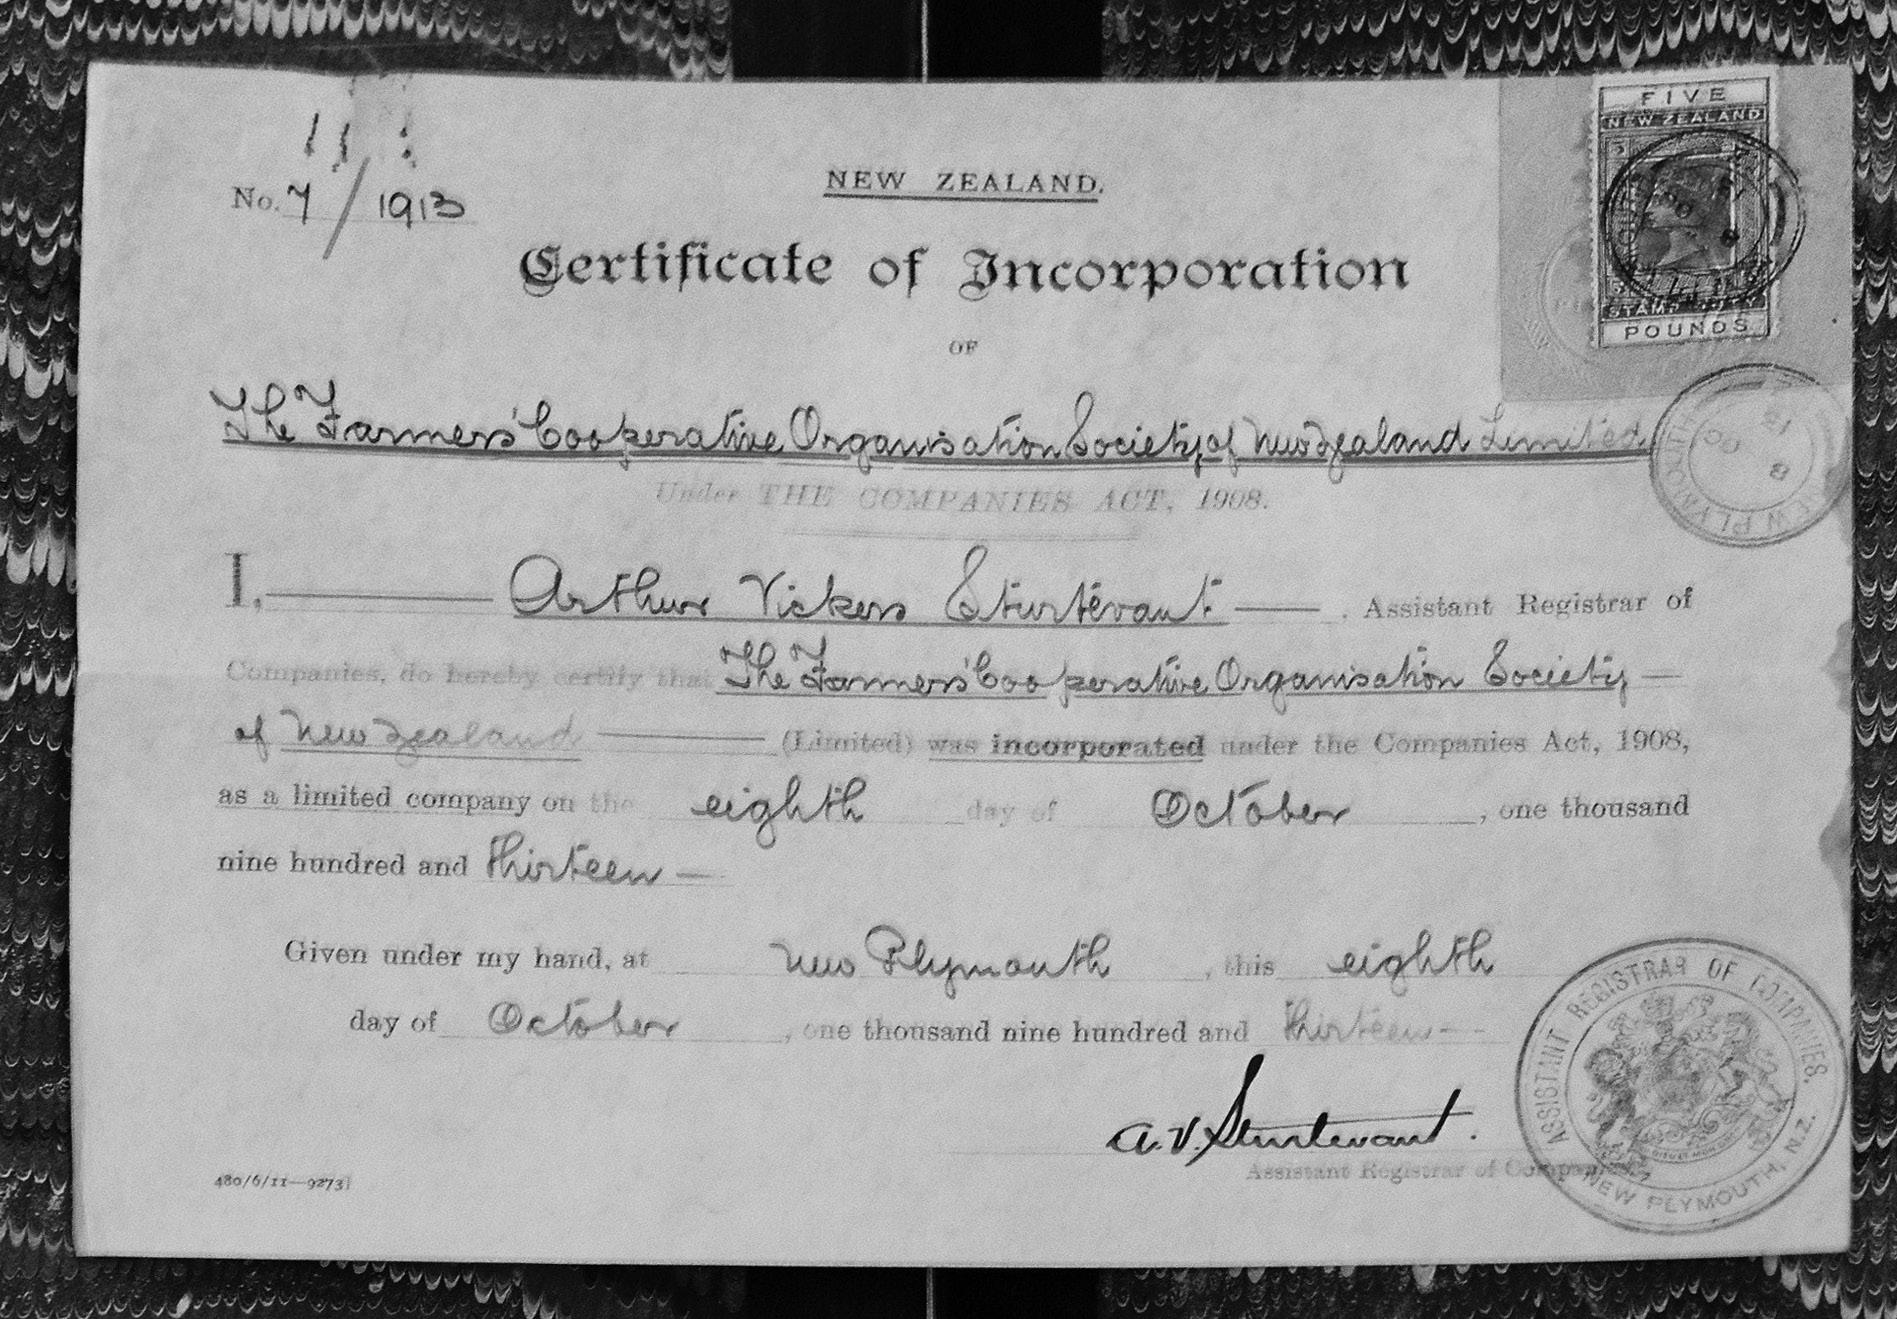 No. 7/1913
NEW ZEALAND.
Certificate of Incorporation
OF
The Farmers' Cooperative Organisation Society of New Zealand Limited
Under THE COMPANIES ACT, 1908.
I, Arthur Vickers Sturtevant. Assistant Registrar of
Companies, do hereby certify that The Farmers' Cooperative Organisation Society
of New Zealand (Limited) was incorporated under the Companies Act, 1908,
as a limited company on the eighth day of October, one thousand
nine hundred and thirteen
Given under my hand, at New Plymouth, this eighth
day of October, one thousand nine hundred and thirteen
A. V. Sturtevant.
Assistant Registrar of Companies
480/6/11—9273]
FIVE
NEW ZEALAND
STAMP DUTY
POUNDS
NEW PLYMOUTH
8 OC 13
ASSISTANT REGISTRAR OF COMPANIES.
NEW PLYMOUTH, N.Z.